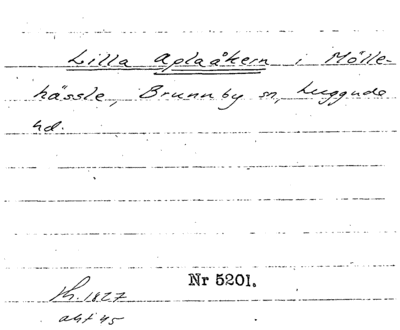 Lilla Aplaåkern i Mölle-
hässle, Brunnby sn, Luggude
hd.
Nr 5201.
Kh. 1827
akt 45